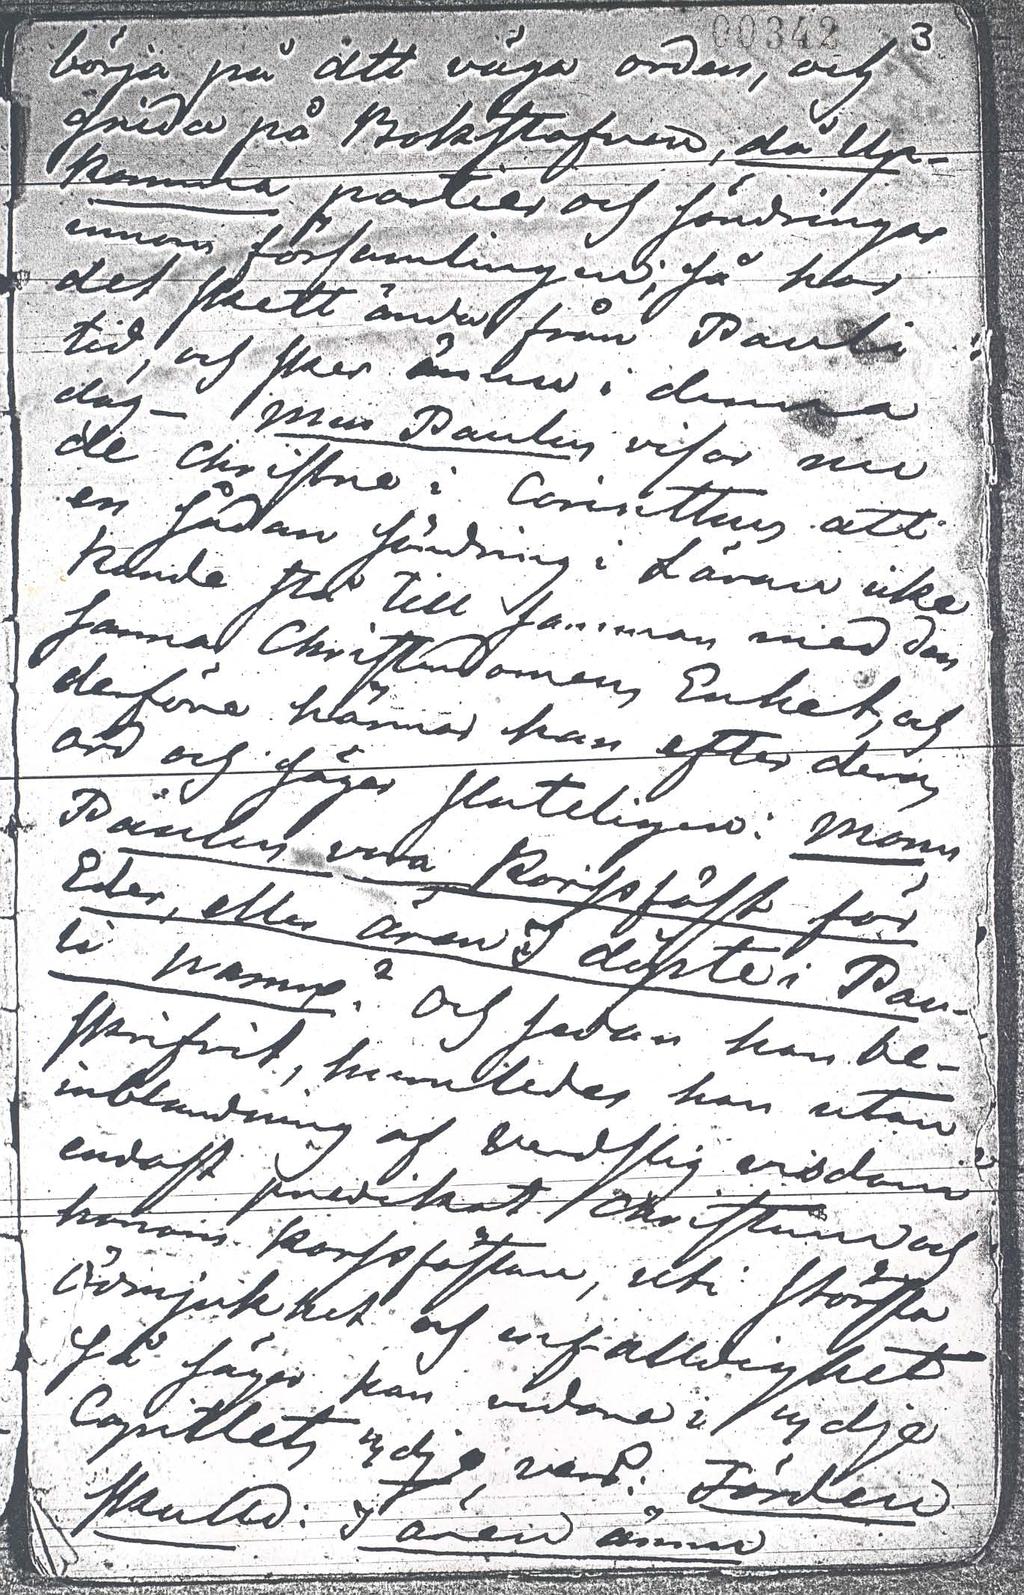 00342 3
börja på att väga orden, och
gnida på Bokstafven, då Up-
komma partier och söndringar
innom församlingen; så har
det skett ända från Pauli
tid, och sker ännu i denna
dag — Men Paulus visar nu
de Christne i Corinthus att
en sådan söndring i Läran icke
kunde stå till samman med den
sanna Christendomens Enhet, och
derföre han efter deras
ord och säger sluteligen: Månn
Paulus vara korssfäst för
Eder, eller ären I döpte i Pau-
li namn? Och sedan han be-
skrifvit, hurruledes han utan
inblandning af Verdslig visdom
endast predikat Christum och
honom korssfästan, uti största
ödmjukhet och enfalldighet
så säger han vidare i 3dje
Capitlets 3dje vers: Förden
skulld: I ären ännu